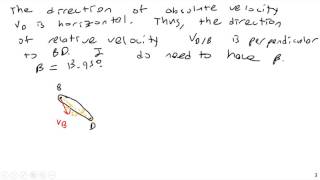 The direction of absolute velocity
v_D is horizontal. Thus, the direction
of relative velocity v_D/B is perpendicular
to BD. I do need to have β.
β = 13.95°
B
v_B
D
3